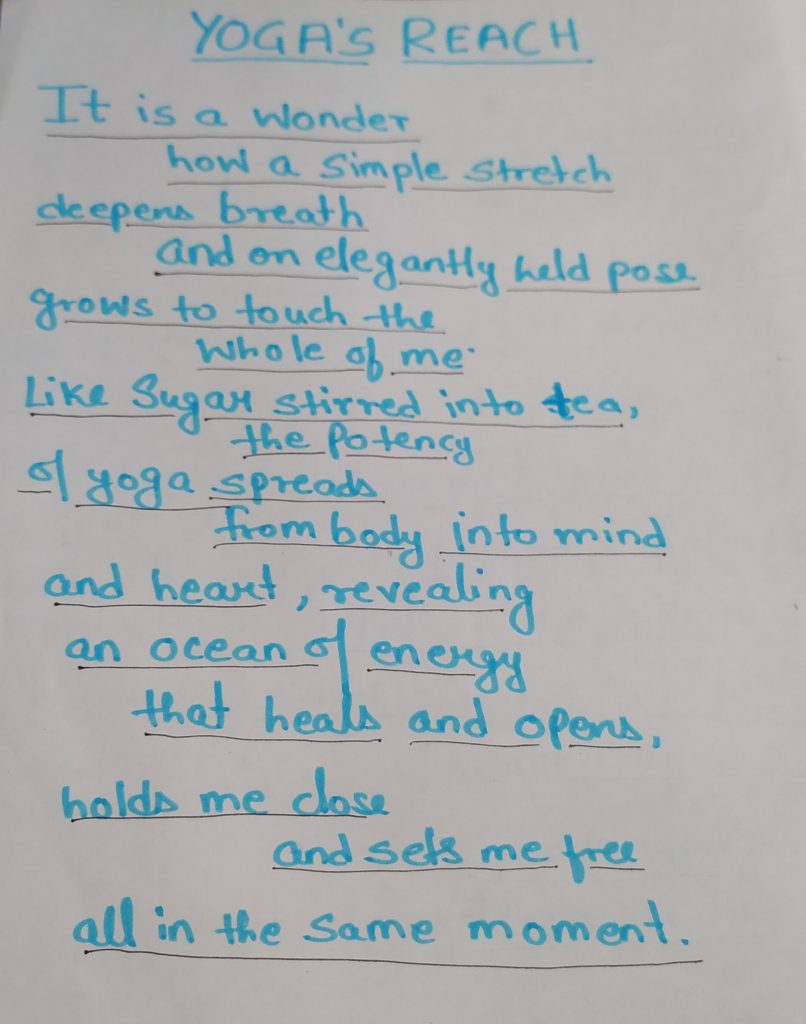 YOGA'S REACH
It is a wonder
how a simple stretch
deepens breath
and on elegantly held pose
grows to touch the
whole of me.
Like Sugar stirred into tea,
the Potency
of yoga spreads
from body into mind
and heart, revealing
an ocean of energy
that heals and opens,
holds me close
and sets me free
all in the same moment.